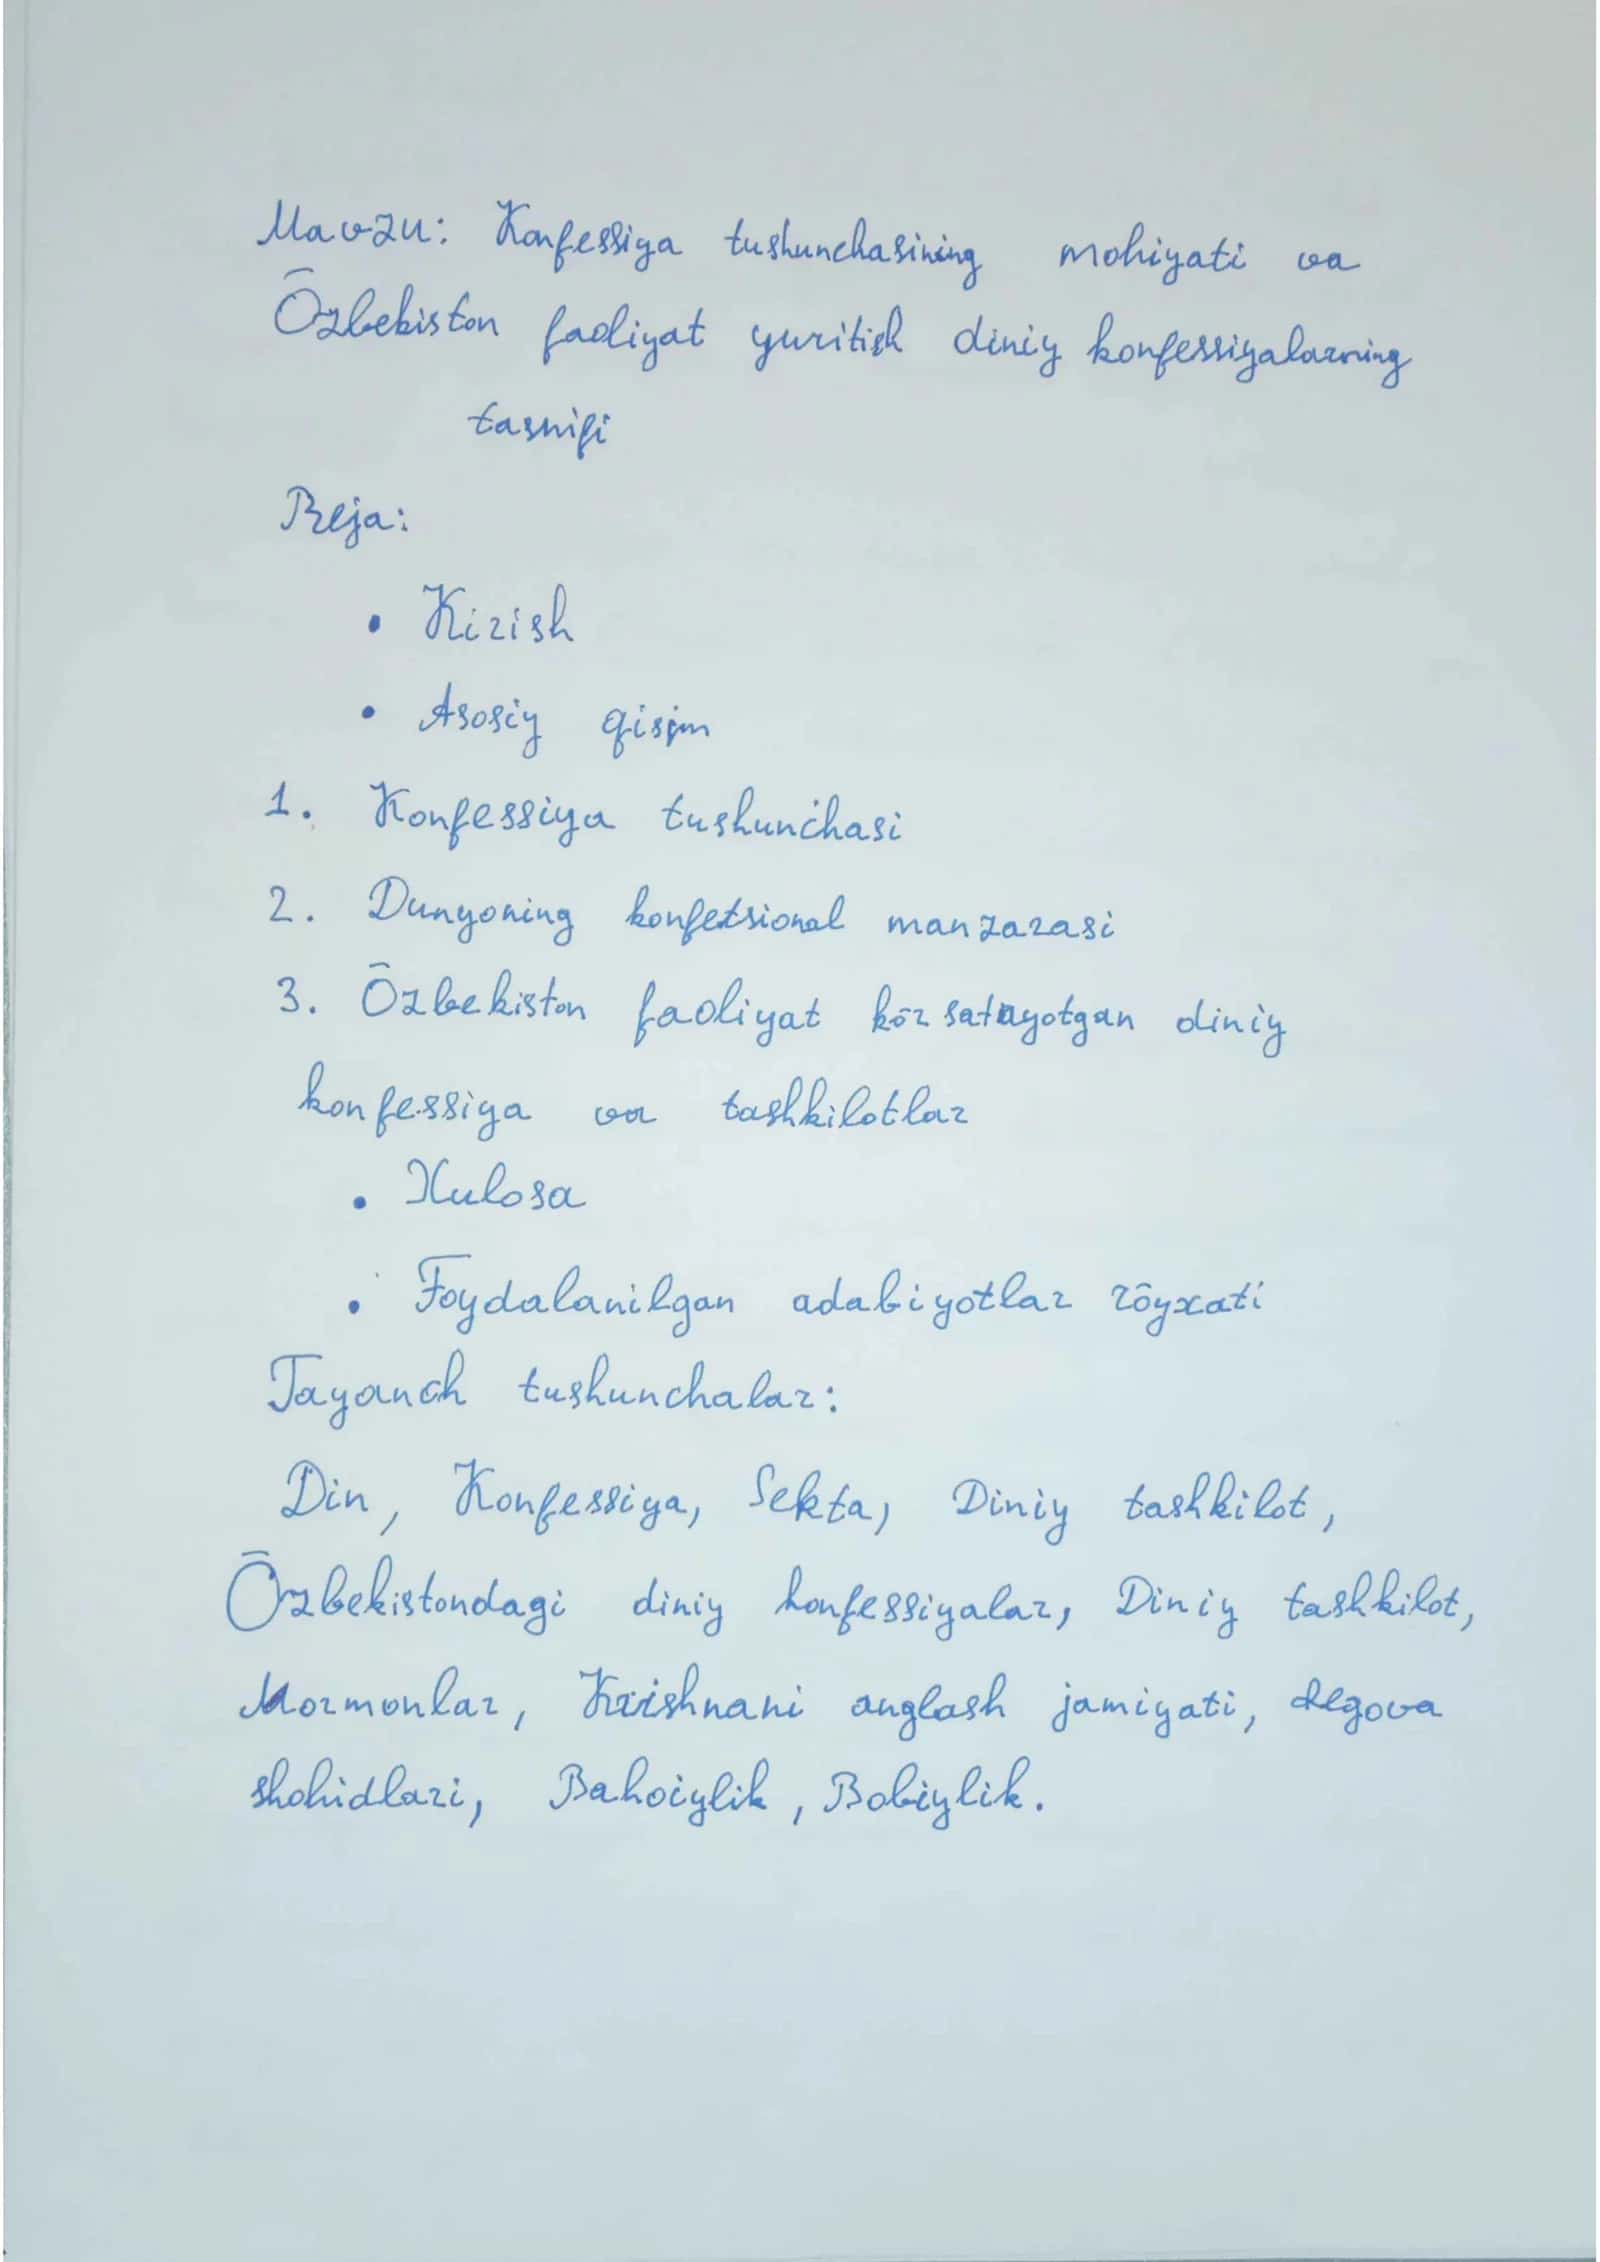 Mavzu: Konfessiya tushunchasining mohiyati va
Ōzbekiston faoliyat yuritish diniy konfessiyalarning
tasnifi
Reja:
• Kirish
• Asosiy qisim
1. Konfessiya tushunchasi
2. Dunyoning konfetsional manzarasi
3. Ōzbekiston faoliyat kōrsatayotgan diniy
konfessiya va tashkilotlar
• Xulosa
• Foydalanilgan adabiyotlar rōyxati
Tayanch tushunchalar:
Din, Konfessiya, Sekta, Diniy tashkilot,
Ōzbekistondagi diniy konfessiyalar, Diniy tashkilot,
Mormonlar, Krishnani anglash jamiyati,
shohidlari, Bahoiylik, Bobiylik.